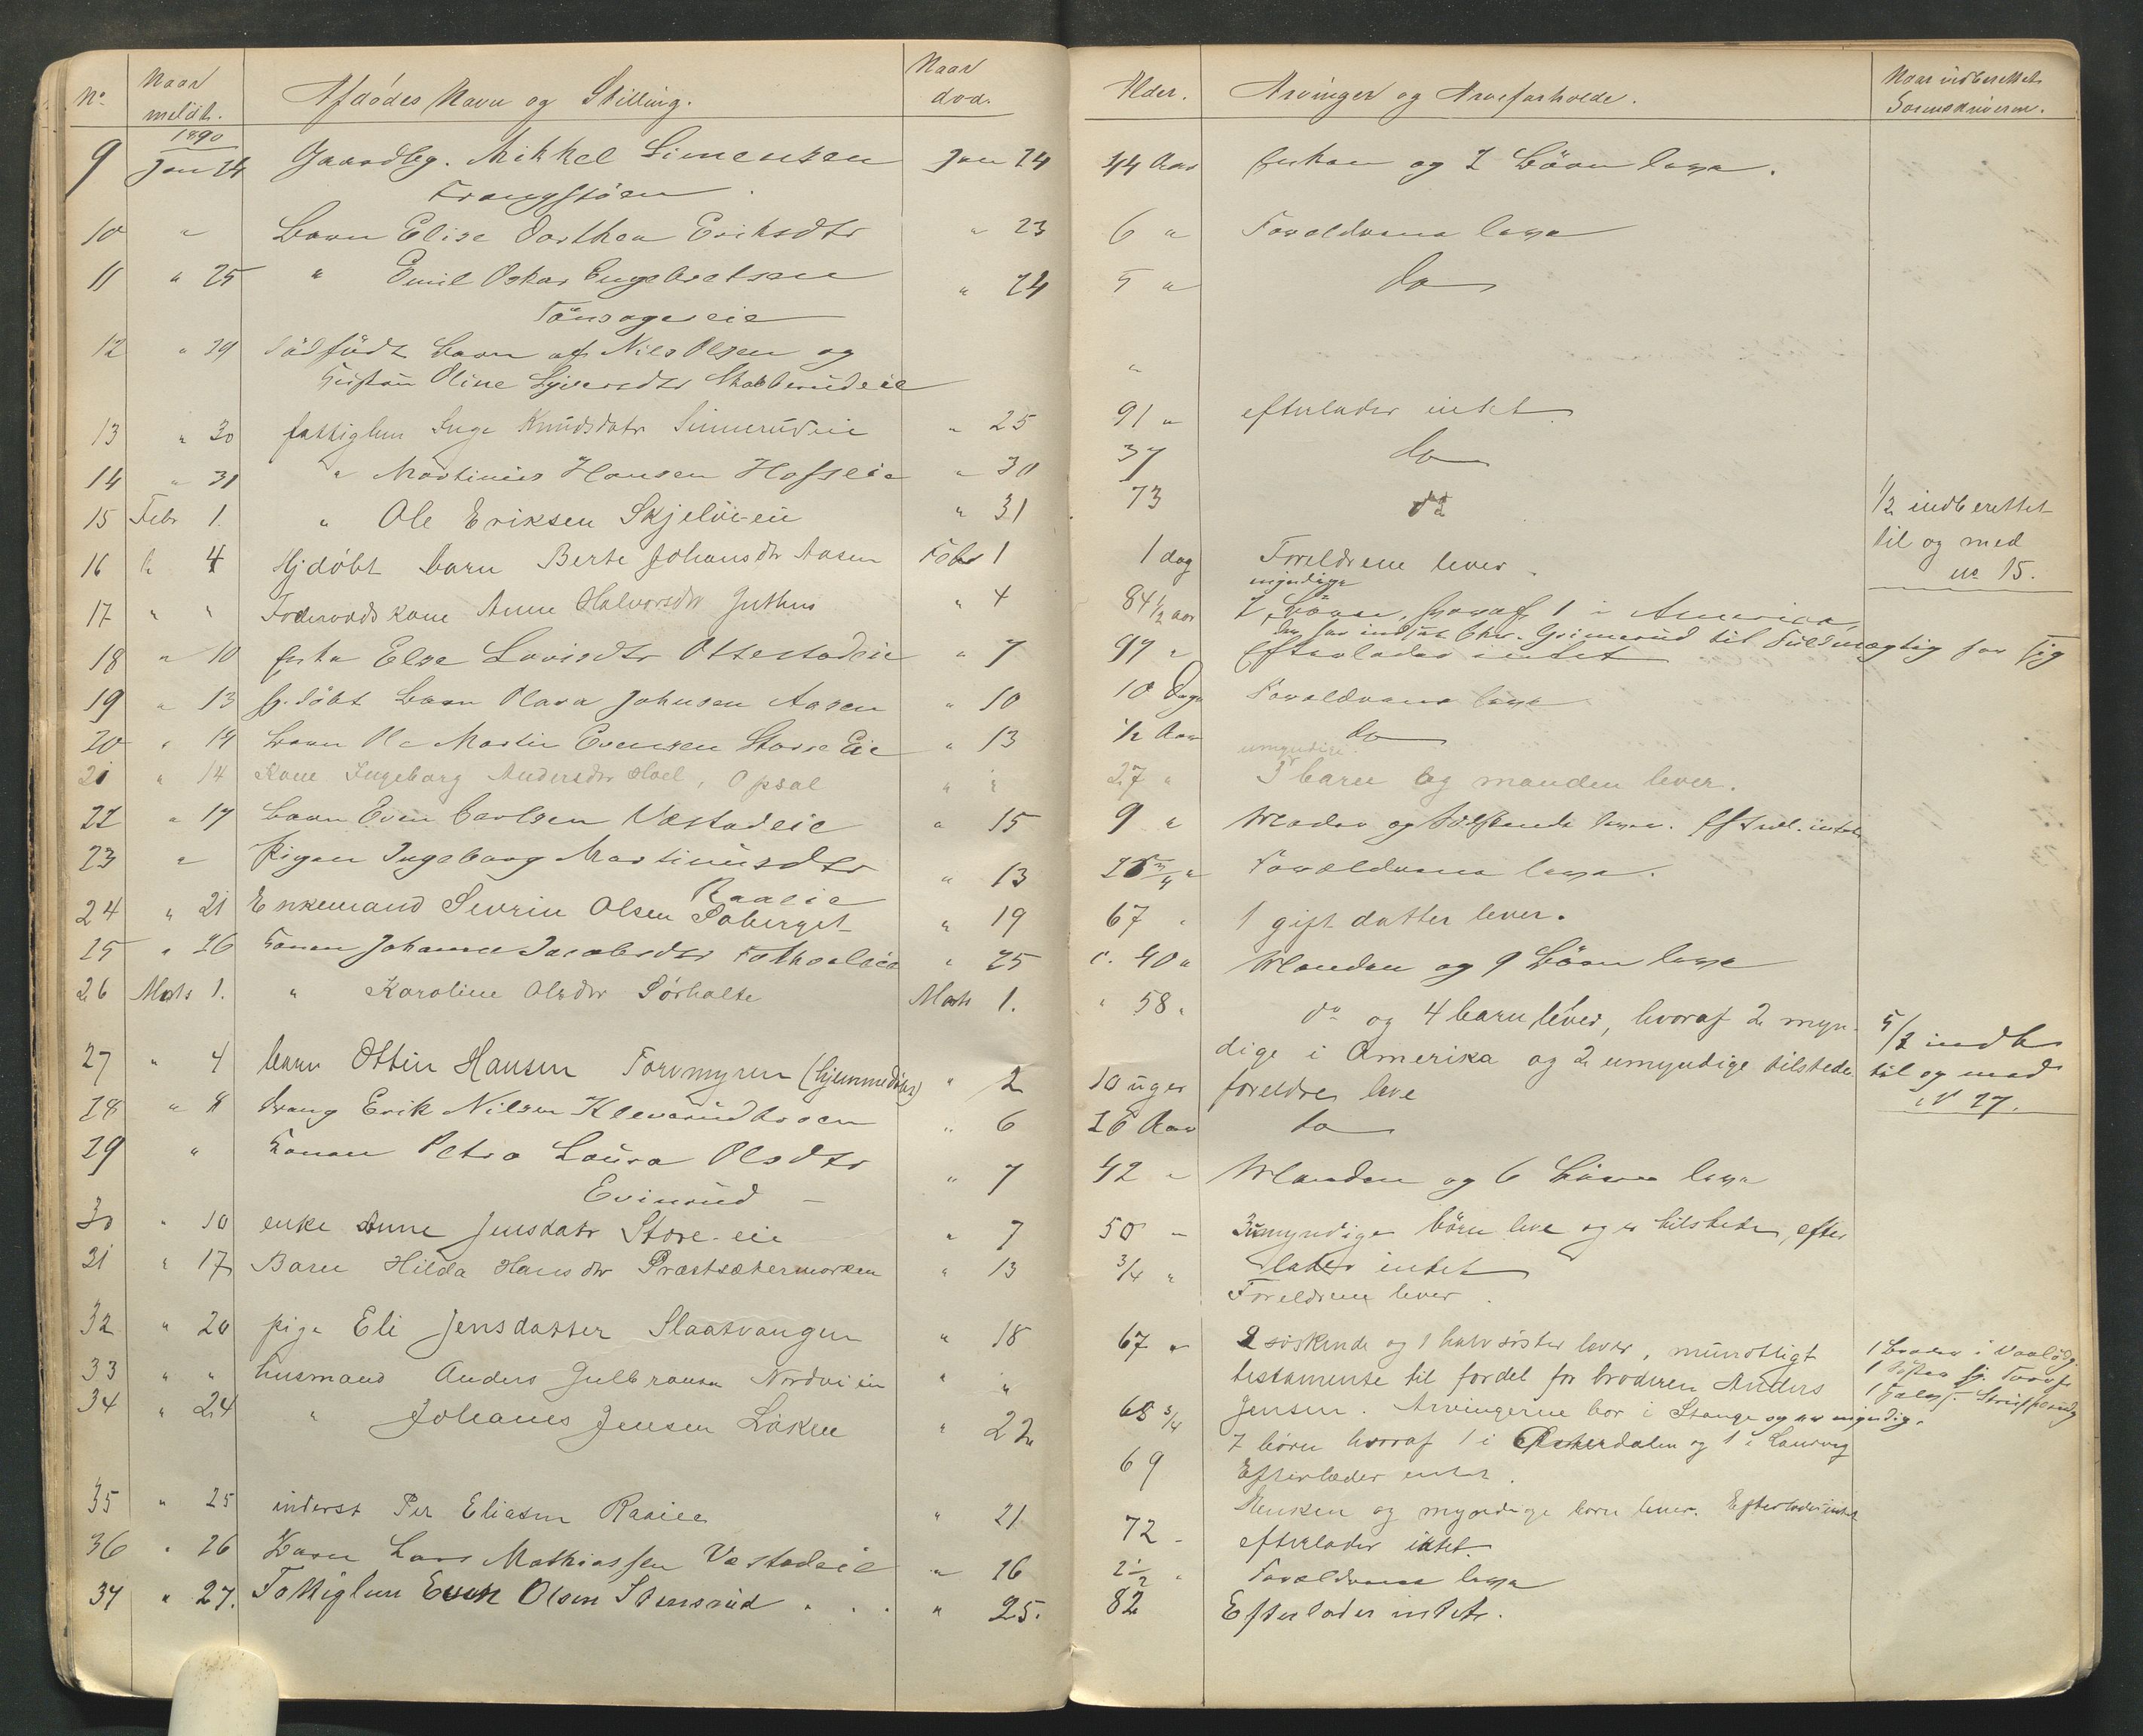 No. Naar meldt. Afdödes Navn og Stilling. Naar död. Alder. Arvinger og Arveforholde. Naar indberettet Sorenskriveren.
1890
9 Jan 24 Gaardbg. Mikkel Simensen Jan 24 44 Aar Enken og 7 Börn leve.
Frangstöen
10 " Barn Elise Dorthea Eriksdtr " 23 6 " Foraldrene leve
11 " 25 " Emil Oskar Engebretsen " 24 5 " do
Tönsagereie
12 " 29 Dödfödt Barn af Nils Olsen og "
Hustru Oline Syversdtr Stabberudeie
13 " 30 fattiglem Inge Knudsdatr Simerudeie " 25 91 " efterlader intet
14 " 31 " Martinius Hansen Hofseie " 30 37 do
15 Febr 1. " Ole Eriksen Skjelve-eie " 31 73 do 1/2 indberettet
til og med
no 15.
16 " 4 Hjdöbt barn Berte Johansdtr Aasen Febr 1 1 dag Foreldrene lever.
17 " " Föderaads kone Anne Halvorsdtr Juthus " 4 84 1/2 aar 7 myndige Börn, hvoraf 1 i America,
der har indsat Chr. Grimerud til Fuldmægtig for sig
18 " 10 Enke Else Lovisdtr Ottestadeie " 7 97 " Efterlader intet
19 " 13 hj. döbt Barn Olava Johnsen Aasen " 10 10 Dage Foraldrene leve
20 " 14 Barn Ole Martin Evensen Storre Eie " 13 1/2 Aar do
21 " 14 Kone Ingeborg Andersdtr Hoel, Opsal " " 27 " 3 umyndige barn og manden lever.
22 " 17 Barn Even Carlsen Vestadeie " 15 9 " Moder og Sölskende leve. Efterl. intet
23 " Pigen Ingeborg Martinusdtr " 13 Foraldrene leve.
Raaeie
24 " 21 Enkemand Sevrin Olsen Soberget " 19 67 " 1 gift datter lever.
25 " 26 Konen Johanne Jacobsdtr " 25 c. 40 " Manden og 9 Börn leve
26 Marts 1. " Karoline Olsdtr Sörholte Marts 1. " 58 " do og 4 barn lever, hvoraf 2 myn-
dige i Amerika og 2 umyndige tilstede 5/3 indb
til og med
N 27.
27 " 4 barn Ottin Hansen Formyren (hjemmedöbt) " 2 10 uger foreldre leve
28 " 8 dreng Erik Nilsen Kleverudbroen " 6 16 Aar do
29 " Konen Petra Laura Olsdtr " 7 42 " Manden og 6 Börn leve
Evinrud
30 " 10 enke Anne Jensdatr Store-eie " 7 50 " 3 umyndige börn leve og er tilstede, efter
lader intet
31 " 17 Barn Hilda Hansdtr Præstsætermarken " 13 3/4 " Foreldrene lever.
32 " 20 pige Eli Jensdatter Slaatsvangen " 18 67 " 2 söskende og 1 halvsöster lever, mundtligt
testamente til fordel for broderen Anders
Jensen. Arvingerne bor i Stange og er myndig.
1 Broder i
1 Söster
1
33 " " husmand Anders Gulbransen Nordvi eie " " 68 3/4 7 börn hvoraf 1 i Österdalen og 1 i Laurvig
34 " 24 " Johanes Jensen Löken " 22 69 Efterlader intet.
35 " 25 inderst Per Eliasen Raaeie " 21 72 " Enken og myndige börn lever. Efterlader intet
efterlader intet.
36 " 26 Barn Lars Mathiassen Vestadeie " 26 2 1/2 " Foraldrene leve
37 " 27. Fattiglem Even Olsen Stensrud . . . " 25. 82 Efterlader intet.